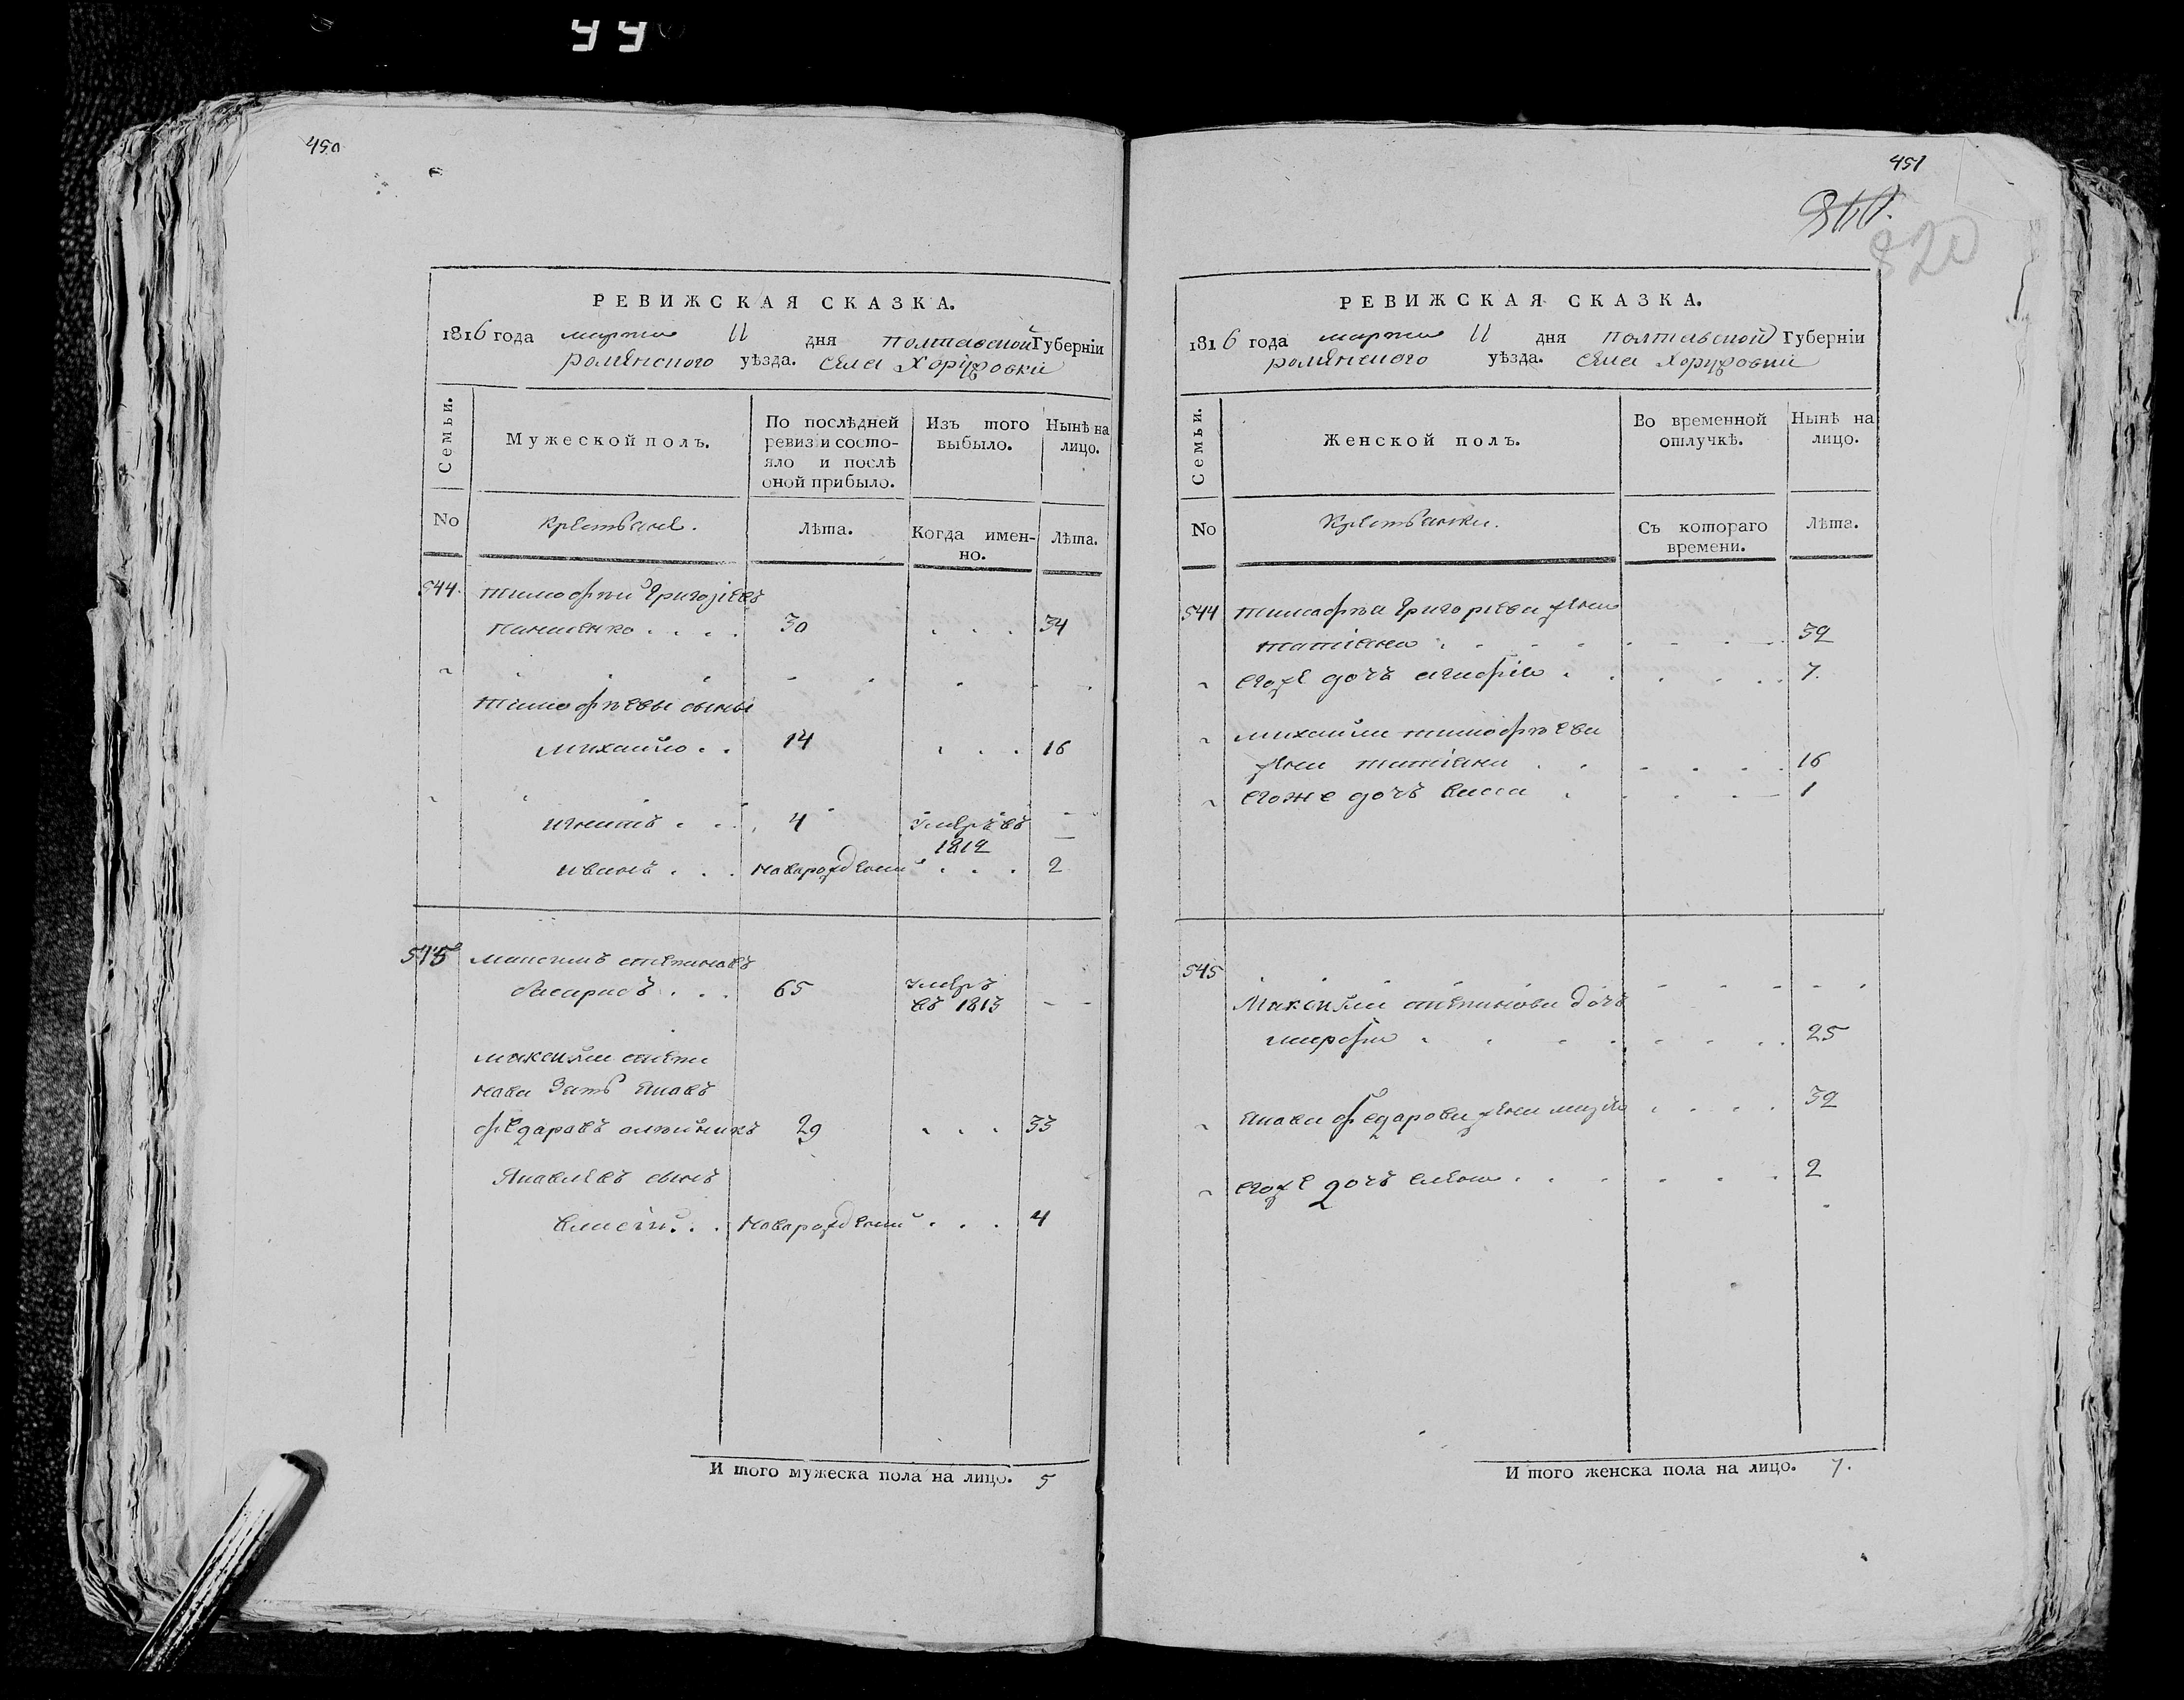 450
РЕВИЖСКАЯ СКАЗКА.
1816 года марта 11 дня полтавской Губерніи
роменского уѣзда. села Хоружовки
Семьи.
Мужеской полъ.
По послѣдней ревизіи состояло и послѣ оной прибыло.
Изъ того выбыло.
Нынѣ на лицо.
No
крестьяне.
Лѣта.
Когда именно.
Лѣта.
544. тимофѣй Григоріевъ
30 34
тимофѣевы сыны
михайло 14 16
игнатъ 4 умеръ въ 1812
иванъ новорожденый 2
545 максимъ степановъ
65 умеръ въ 1813
максима степа
нова зять яковъ
федоровъ олѣйникъ 29 33
Яковлевъ сынъ
новорожденый 4
И того мужеска пола на лицо. 5
451
820
РЕВИЖСКАЯ СКАЗКА.
1816 года марта 11 дня полтавской Губерніи
роменского уѣзда. села Хоружовки
Семьи.
Женской полъ.
Во временной отлучкѣ.
Нынѣ на лицо.
No
Крестьянки.
Съ котораго времени.
Лѣта.
544 тимофѣя Григоріева жена
татіана 32
егоже дочь агафія 7.
михайла тимофѣева
жена татіана 16
егоже дочь 1
545
Максима степанова дочь
марфа 25
якова федорова жена марія 32
егоже дочь елена 2
И того женска пола на лицо. 7.